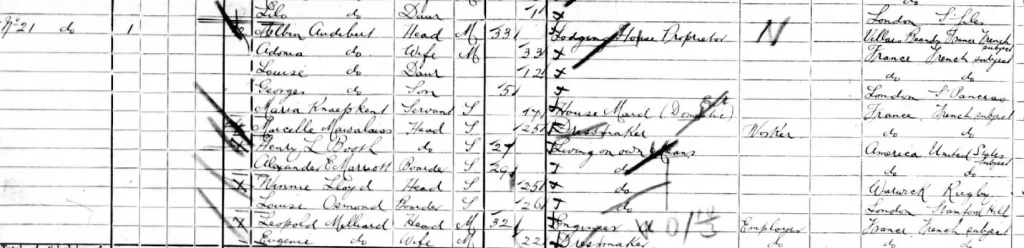 Lilo do Daur 1 London St Giles
No 21 do 1 Albin Audibert Head M 33 Lodging House Proprietor N Villars France French subject
Adonia do Wife M 33 France French subject
Louise do Daur 12 do do
Georges do Son 5 London St Pancras
Maria Knaepkent Servant S 17 House Maid (Domestic) France French subject
Marcelle Head S 25 Dressmaker Worker do do
Henry L Booth do S 27 Living on own means America United States subject
Alexander E Marriott Boarder S 29 do do
Winnie Lloyd Head S 25 do Warwick Rugby
Louise Osmond Boarder S 26 do London Stamford Hill
Leopold Milliard Head M 32 Engineer Employer France French subject
Eugenie do Wife M 22 Dressmaker do do